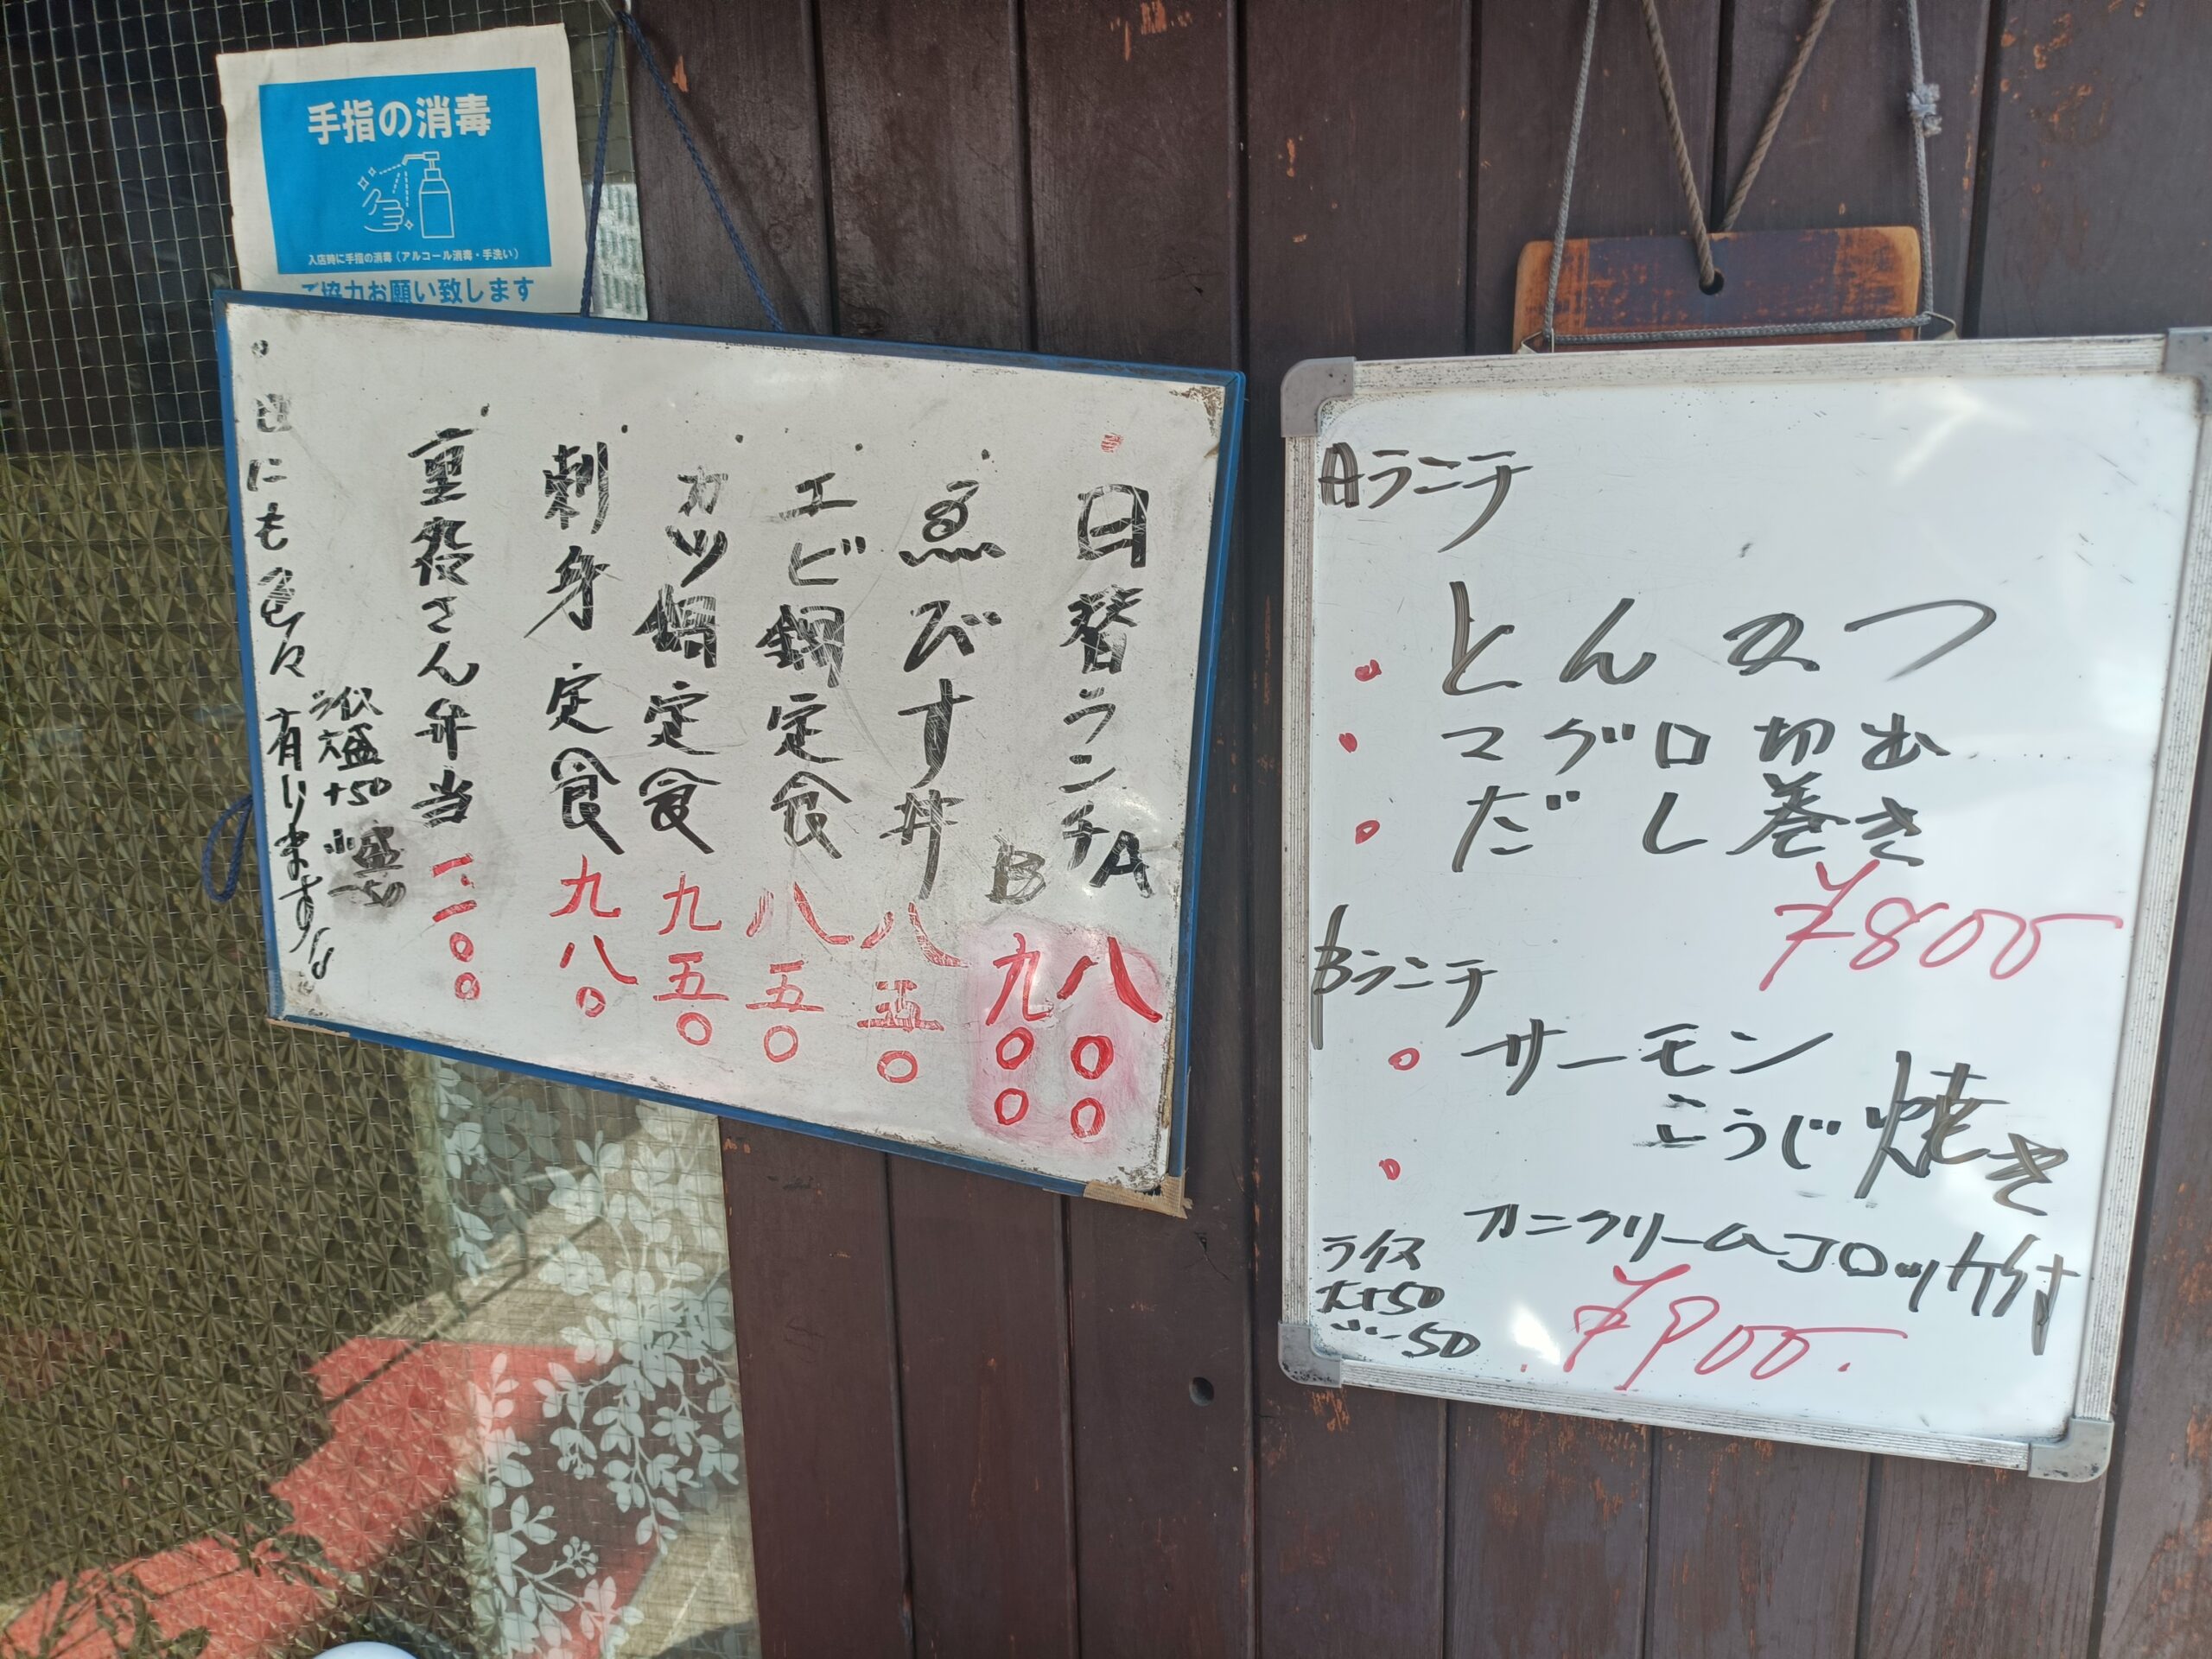 手指の消毒
入店時に手指の消毒（アルコール消毒・手洗い）
ご協力お願い致します
日替ランチA 八〇〇
B 九〇〇
ゑびす丼 八五〇
エビ鍋定食 八五〇
カツ鍋定食 九五〇
刺身定食 九八〇
さん弁当 一、一〇〇
大盛+50
小盛-50
にも色々有りますよ
Aランチ
とんかつ
マグロ切出
だし巻き
¥800
Bランチ
サーモン
こうじ焼き
カニクリームコロッケ付
¥900
ライス
大+50
小-50